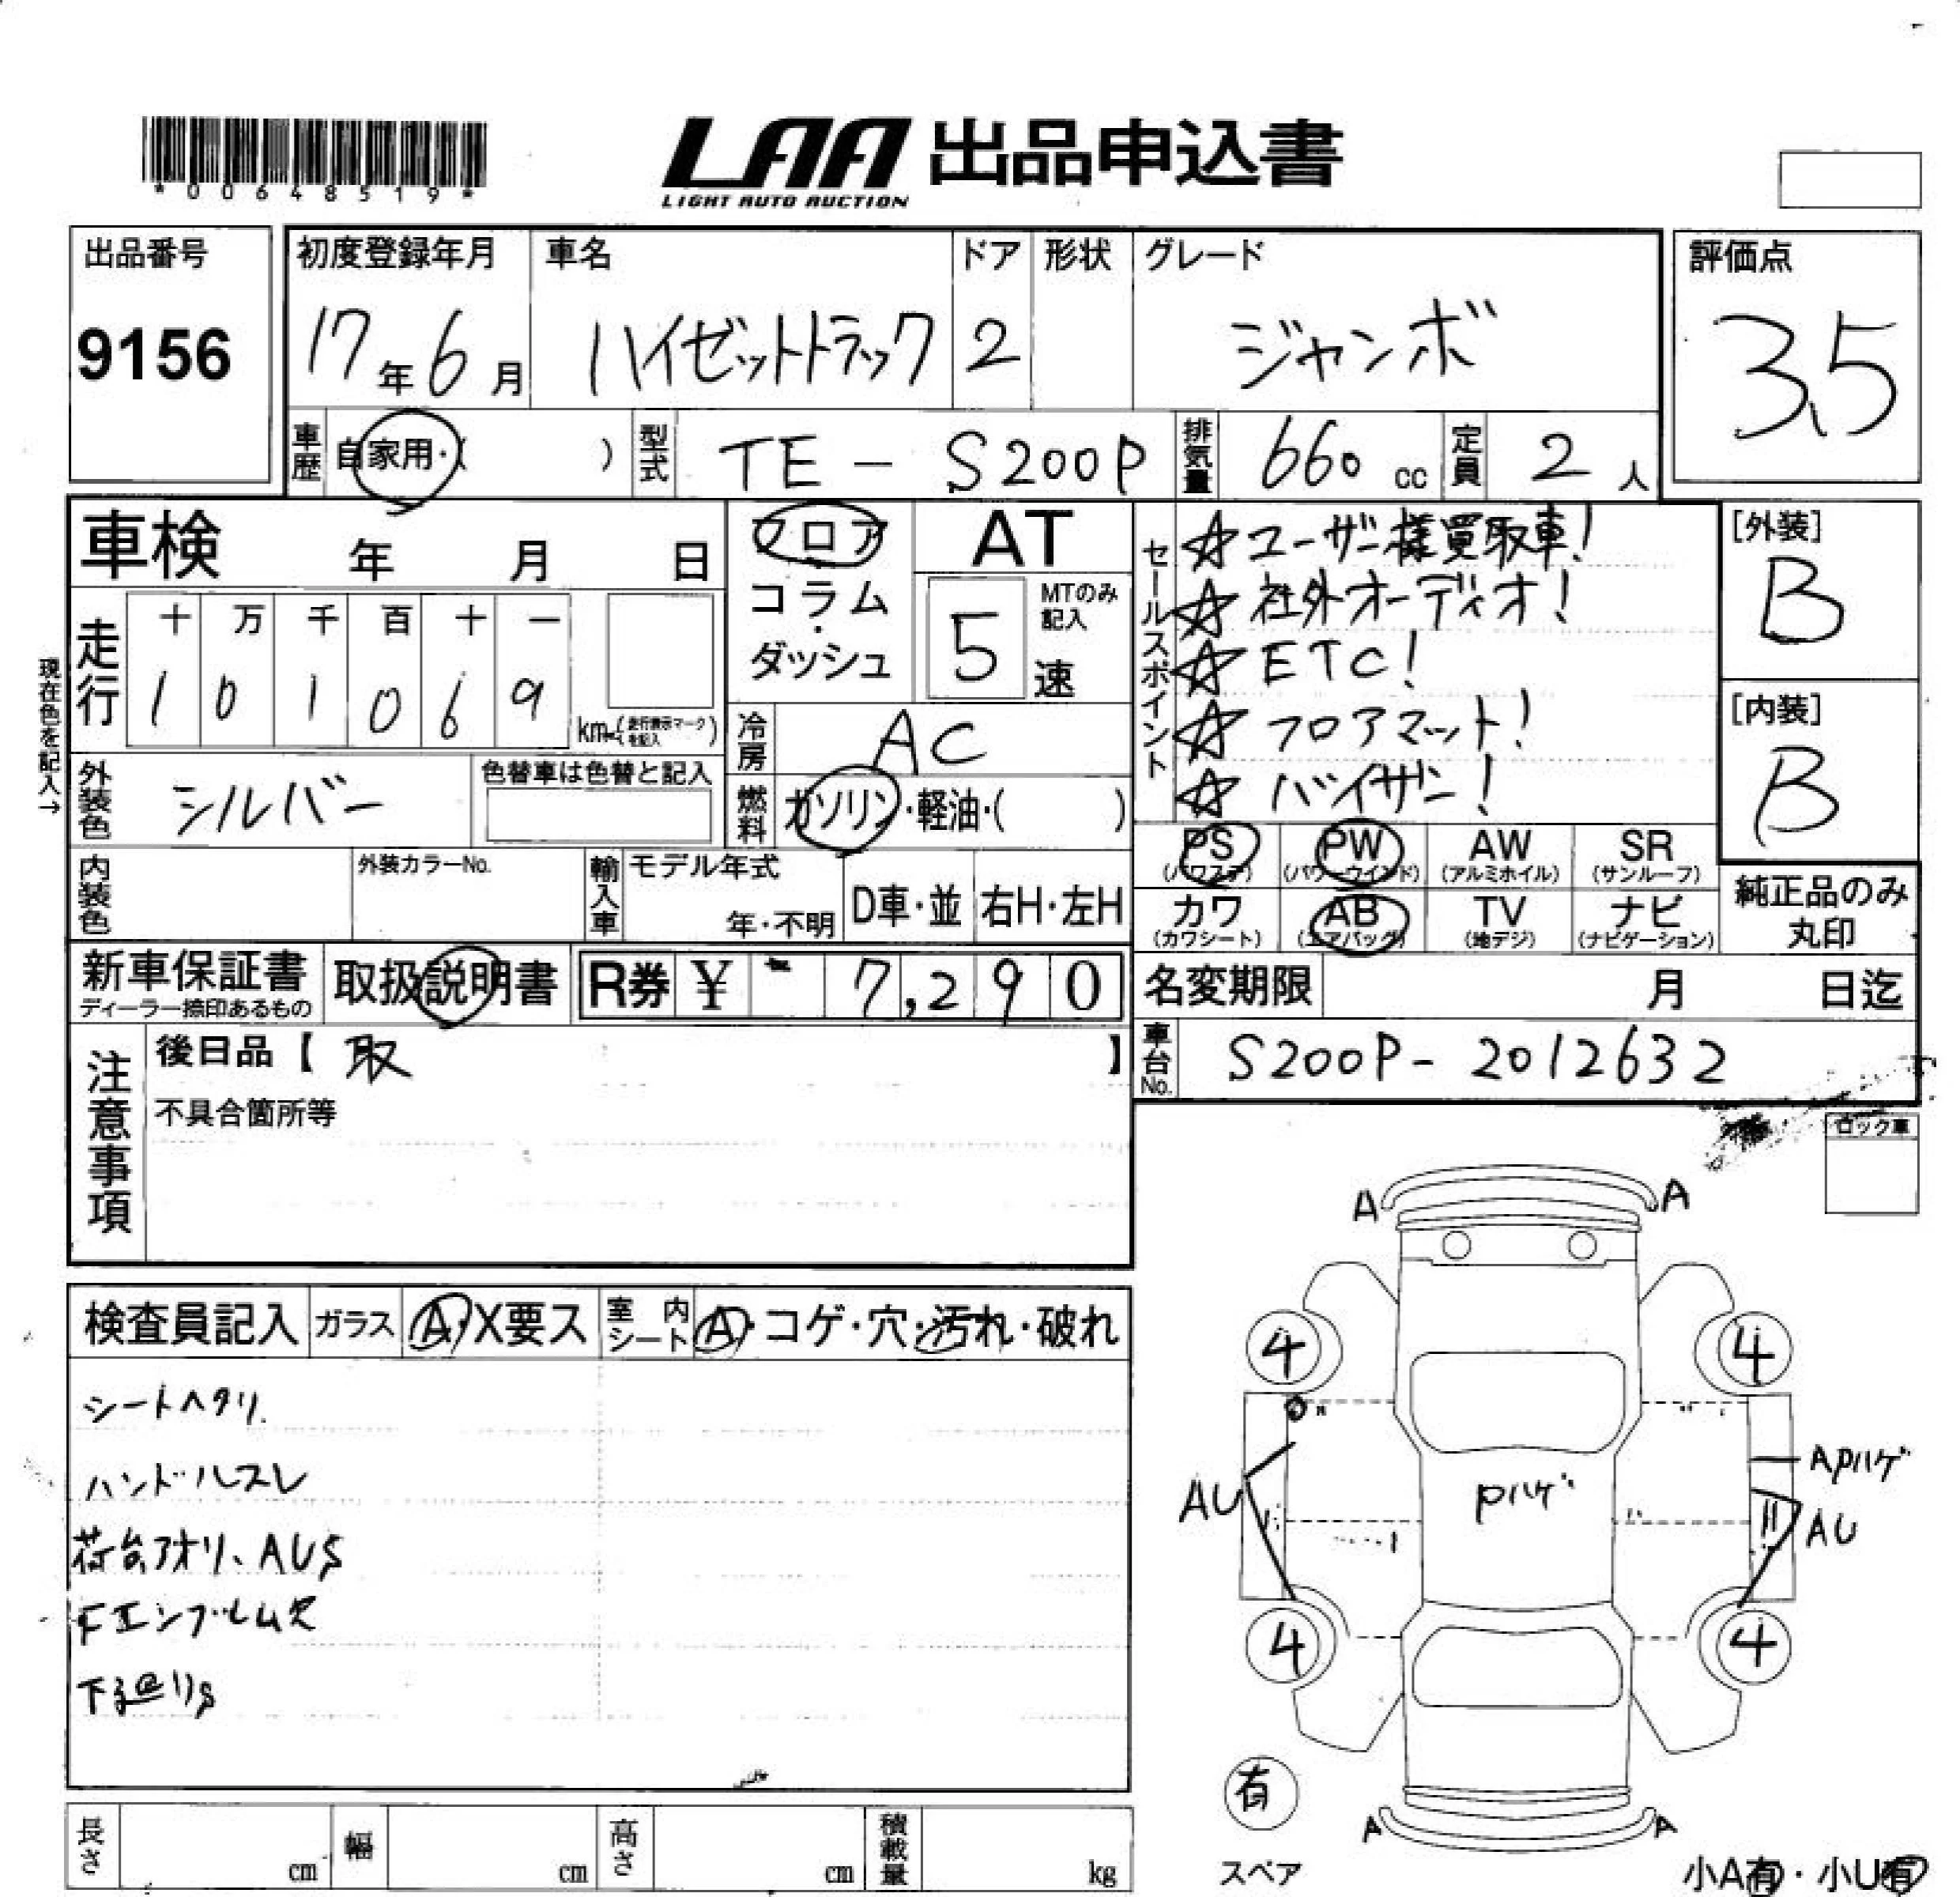 *00648519*
LAA 出品申込書
LIGHT AUTO AUCTION
出品番号
9156
初度登録年月
17年6月
車名
ハイゼットトラック
ドア
2
形状
グレード
ジャンボ
評価点
3.5
車歴
自家用・( )
型式
TE - S200P
排気量
660 cc
定員
2 人
車検 年 月 日
フロア
コラム
・
ダッシュ
AT
5
MTのみ
記入
速
セールスポイント
☆ユーザー様買取車!
☆社外オーディオ!
☆ETC!
☆フロアマット!
☆バイザー!
[外装]
B
[内装]
B
現在色を記入→
走行
十 万 千 百 十 一
1 0 1 0 6 9
km=(走行表示マークを記入)
冷房
AC
外装色
シルバー
色替車は色替と記入
燃料
ガソリン・軽油・( )
PS
(パワステ)
PW
(パワーウインド)
AW
(アルミホイル)
SR
(サンルーフ)
内装色
外装カラーNo.
輸入車
モデル年式
年・不明
D車・並
右H・左H
カワ
(カワシート)
AB
(エアバッグ)
TV
(地デジ)
ナビ
(ナビゲーション)
純正品のみ
丸印
新車保証書
ディーラー捺印あるもの
取扱説明書
R券 ¥ - 7,290
名変期限 月 日迄
注意事項
後日品【 取 】
不具合箇所等
車台No.
S200P - 2012632
ロック車
検査員記入
ガラス
A・X要ス
室内シート
A・コゲ・穴・汚れ・破れ
シートヘタリ
ハンドルスレ
荷台アオリ、AUS
Fエンブレム欠
A
A
4
4
AU
Pハゲ
APハゲ
AU
4
4
有
スペア
A
A
小A有・小U有
長さ cm
幅 cm
高さ cm
積載量 kg